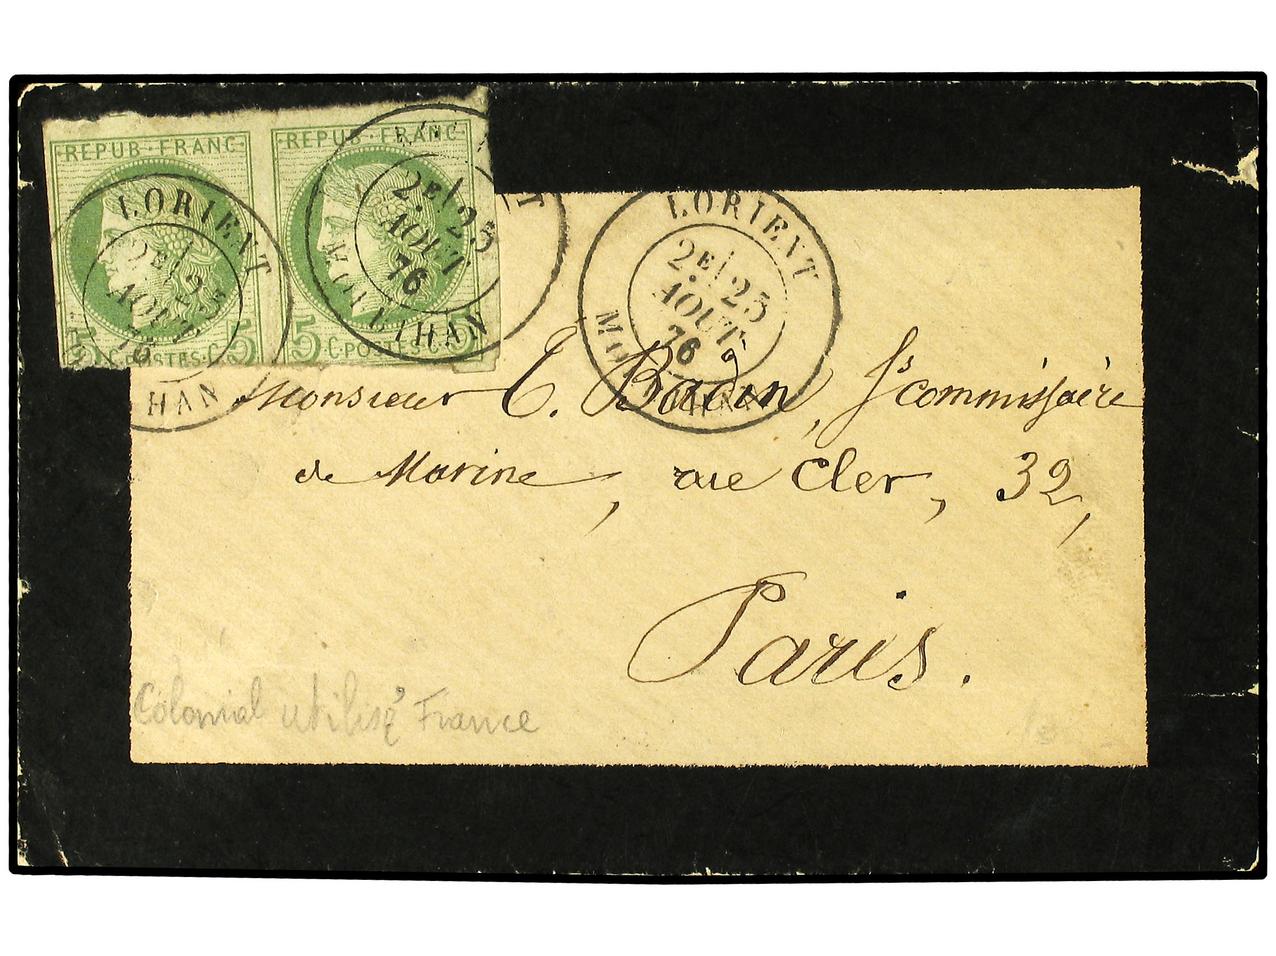 REPUB · FRANC · REPUB · FRANC ·
5 · C · POSTES · C · 5 5 · C · POSTES · C · 5
LORIENT
2E/ 25
AOUT
76
HAN
2E/ 25
AOUT
76
MORBIHAN
LORIENT
2E/ 25
AOUT
76
Monsieur E. Badin, Ss commissaire
de Marine, rue Cler, 32,
Paris.
Colonial utilisé France